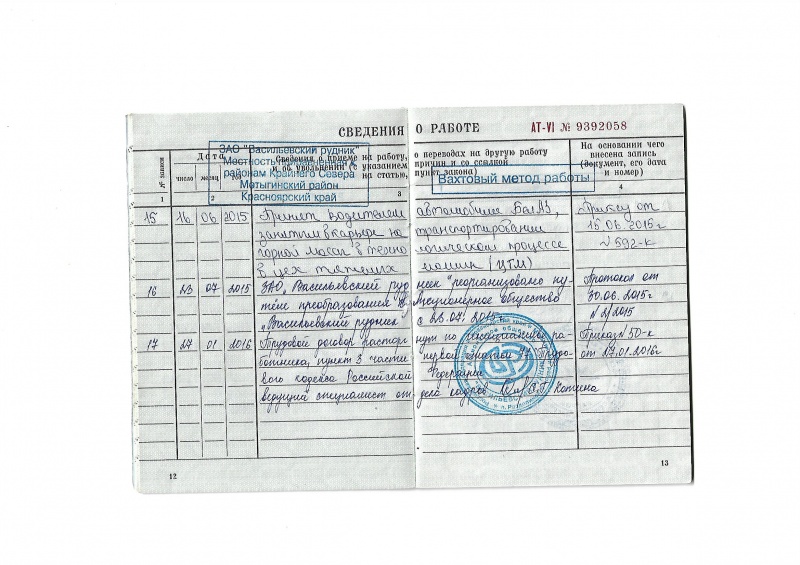 СВЕДЕНИЯ О РАБОТЕ
АТ-VI № 9392058
ЗАО "Васильевский рудник"
Местность приравненная к
районам Крайнего Севера
Мотыгинский район
Красноярский край
Вахтовый метод работы
№ записи
Дата
число месяц год
Сведения о приеме на работу, о переводах на другую работу
и об увольнении (с указанием причин и со ссылкой
на статью, пункт закона)
На основании чего
внесена запись
(документ, его дата
и номер)
1 2 3 4
15 16 06 2015 Принят водителем автомобиля БелАЗ, Приказ от
занятым в карьере на транспортировании 15.06.2015г
горной массы в технологическом процессе, №592-к
в цех тяжелых машин (ЦТМ)
16 23 07 2015 ЗАО „Васильевский рудник" реорганизовано путем Протокол от
преобразования в Акционерное общество 30.06.2015г
„Васильевский рудник" с 23.07.2015г. №2/2015
17 27 01 2016 Трудовой договор расторгнут по инициативе работника, Приказ №50-к
пункт 3 части первой статьи 77 Трудового от 27.01.2016г
кодекса Российской Федерации
ведущий специалист отдела кадров
12
13